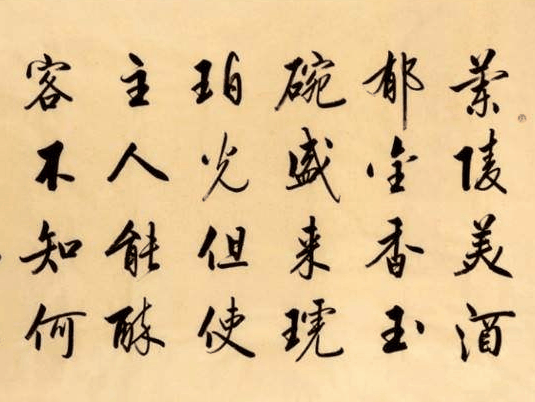 蘭陵美酒
郁金香玉
碗盛来琥
珀光但使
主人能醉
客不知何